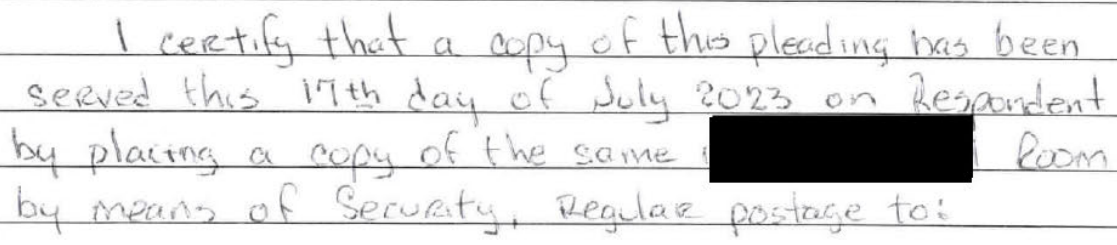 I certify that a copy of this pleading has been
served this 17th day of July 2023 on Respondent
by placing a copy of the same Room
by means of Security, Regular postage to: